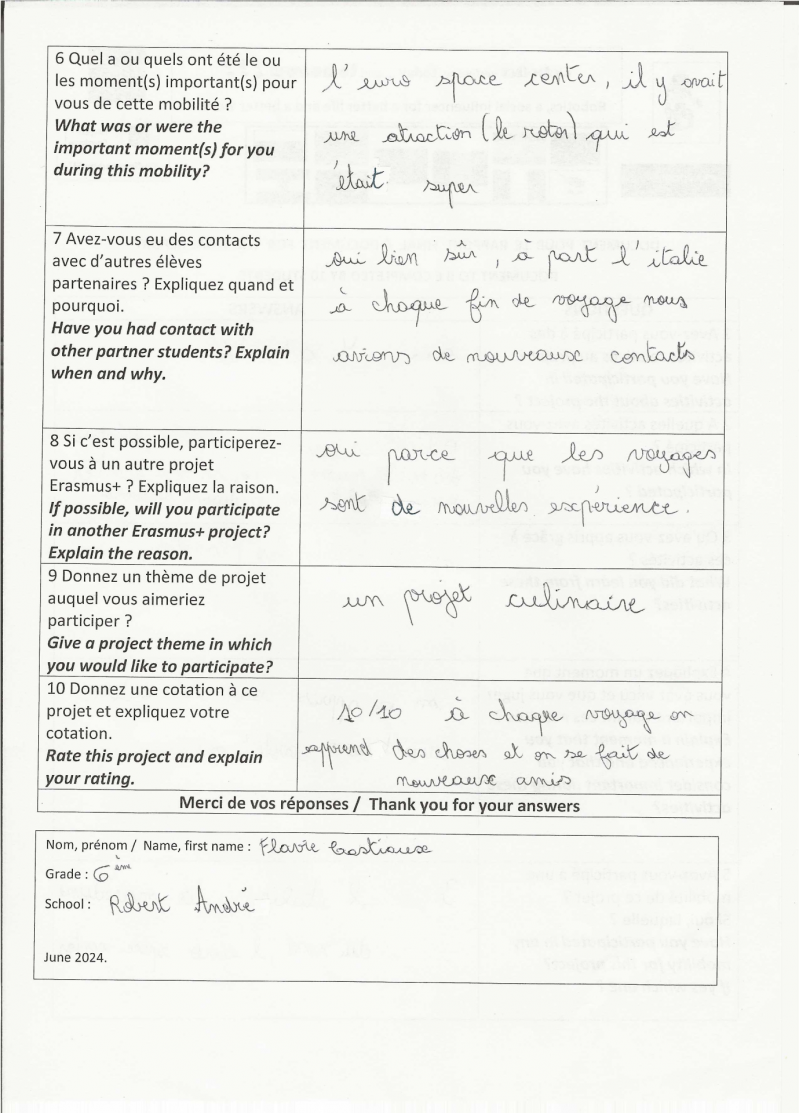 6 Quel a ou quels ont été le ou
les moment(s) important(s) pour
vous de cette mobilité ?
What was or were the
important moment(s) for you
during this mobility?
l'euro space center, il y avait
une atraction (le rotor) qui est
était super
7 Avez-vous eu des contacts
avec d'autres élèves
partenaires ? Expliquez quand et
pourquoi.
Have you had contact with
other partner students? Explain
when and why.
oui bien sûr, à part l'italie
à chaque fin de voyage nous
avions de nouveaux contacts
8 Si c'est possible, participerez-
vous à un autre projet
Erasmus+ ? Expliquez la raison.
If possible, will you participate
in another Erasmus+ project?
Explain the reason.
oui parce que les voyages
sont de nouvelles expérience.
9 Donnez un thème de projet
auquel vous aimeriez
participer ?
Give a project theme in which
you would like to participate?
un projet culinaire
10 Donnez une cotation à ce
projet et expliquez votre
cotation.
Rate this project and explain
your rating.
10/10 à chaque voyage on
apprend des choses et on se fait de
nouveaux amis
Merci de vos réponses / Thank you for your answers
Nom, prénom / Name, first name : Flavie Castiaux
Grade : 6ème
School : Robert André
June 2024.